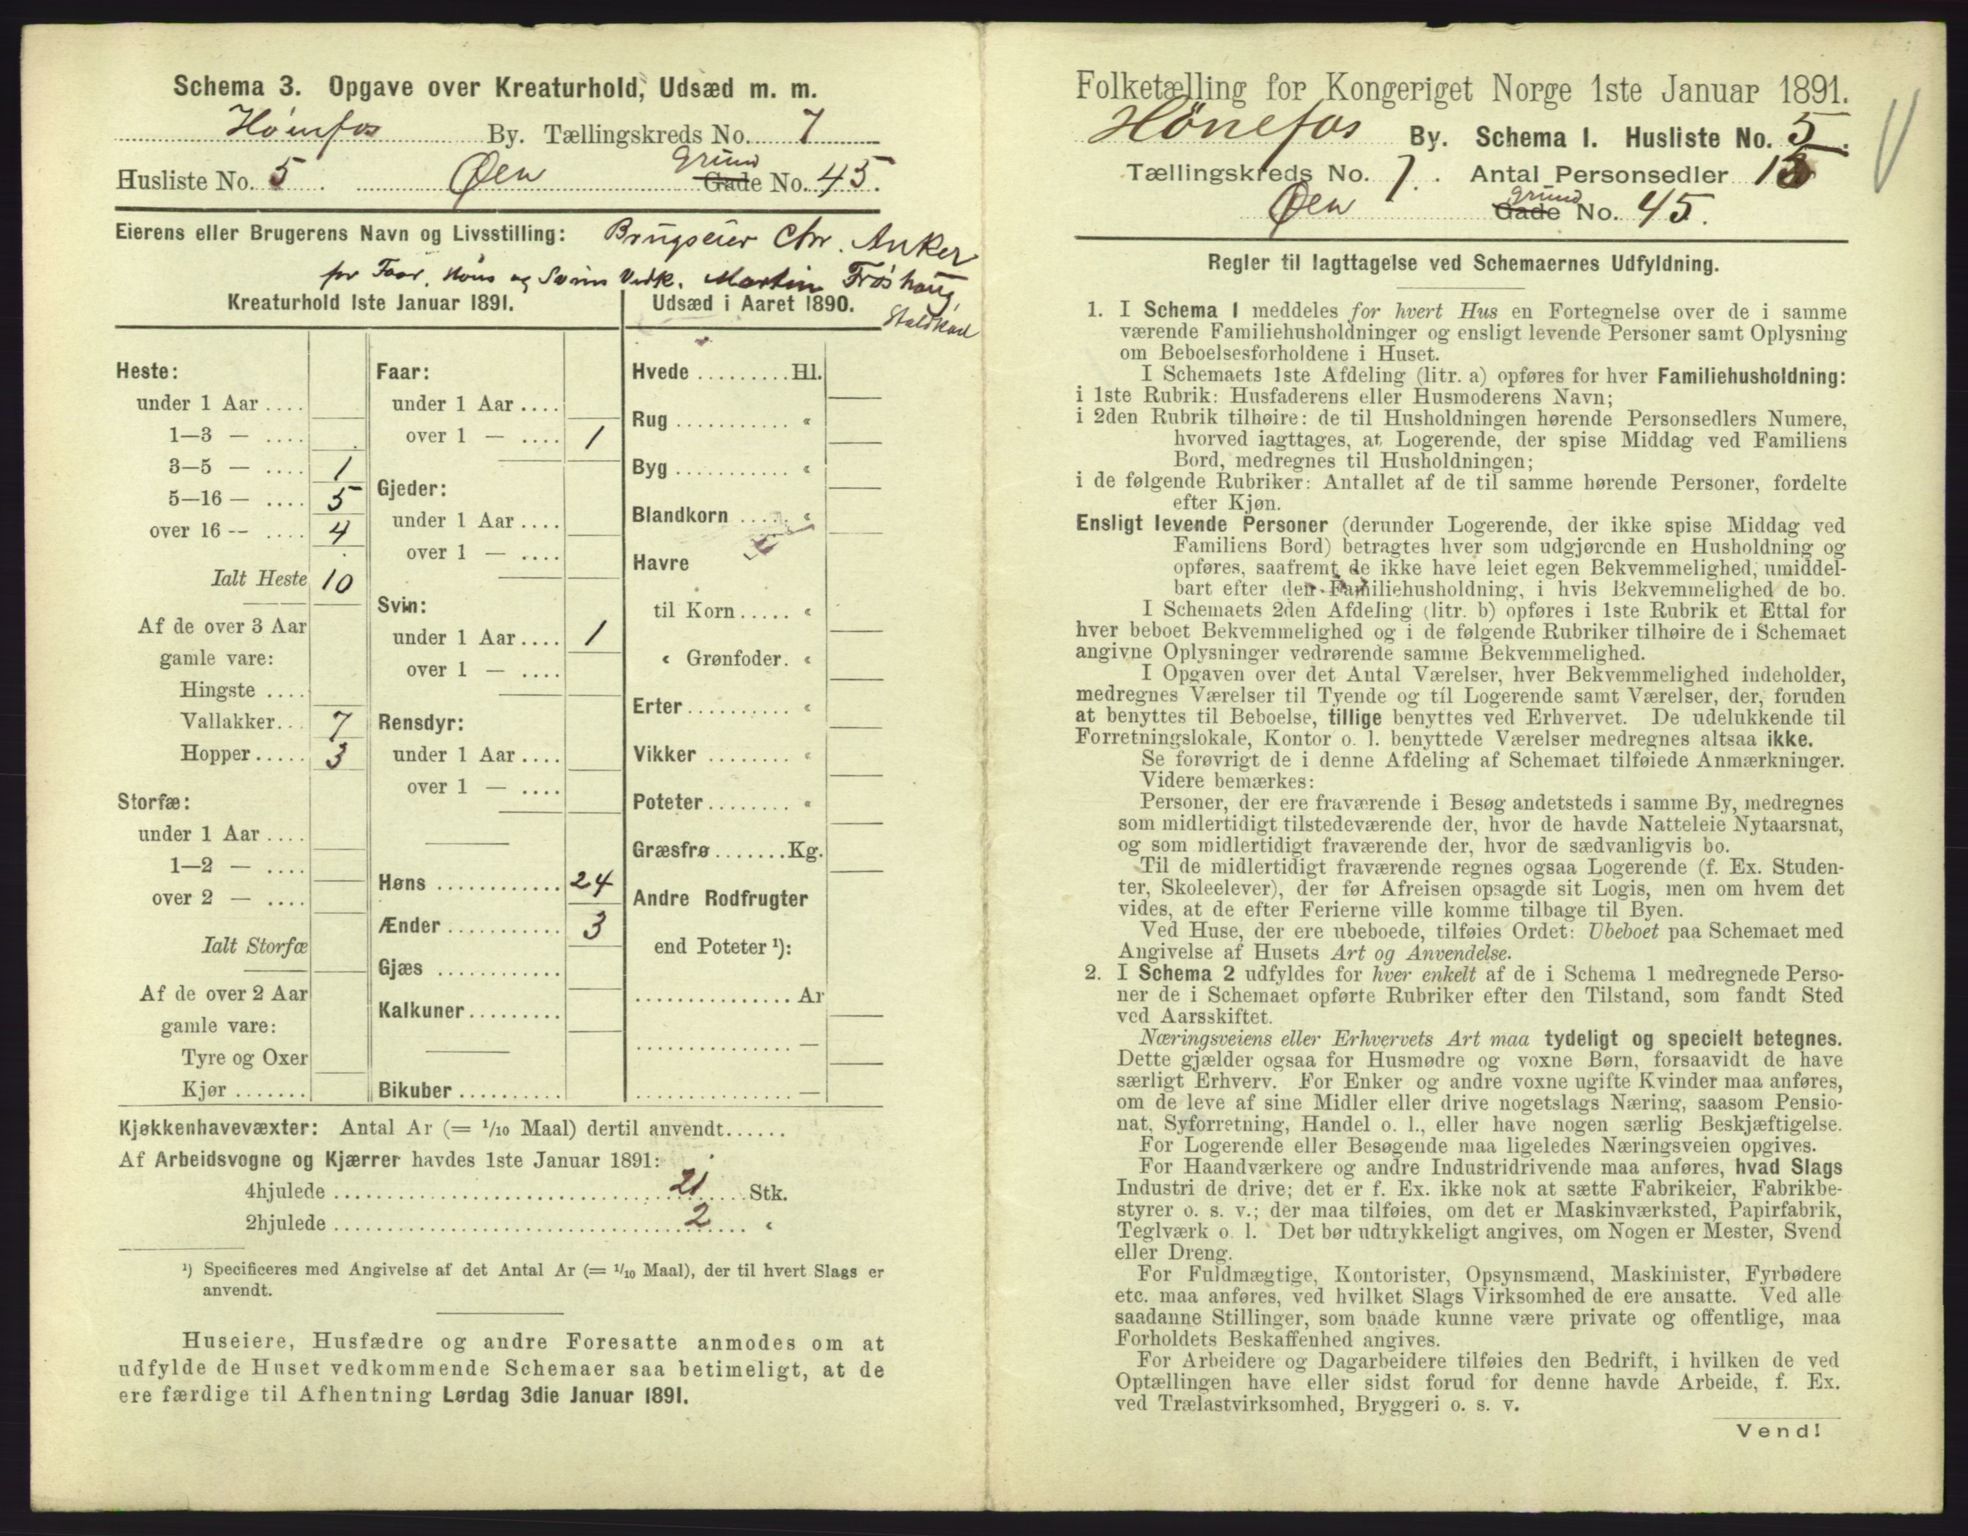 Schema 3. Opgave over Kreaturhold, Udsæd m. m.
Hønefos By. Tællingskreds No. 7
Husliste No. 5. Øen Gade grund No. 45.
Eierens eller Brugerens Navn og Livsstilling: Brugseier Chr. Anker
for Faar, Høns og Sviin Vedk. Martin Frøshaug,
Staldkarl
Kreaturhold 1ste Januar 1891.
Heste:
under 1 Aar ....
1—3 — ....
3—5 — .... 1
5—16 — .... 5
over 16 — .... 4
Ialt Heste 10
Af de over 3 Aar
gamle vare:
Hingste ....
Vallakker... 7
Hopper..... 3
Storfæ:
under 1 Aar ....
1—2 — ....
over 2 — ....
Ialt Storfæ
Af de over 2 Aar
gamle vare:
Tyre og Oxer
Kjør .......
Faar:
under 1 Aar ....
over 1 — .... 1
Gjeder:
under 1 Aar ....
over 1 — ....
Svin:
under 1 Aar .... 1
over 1 — ....
Rensdyr:
under 1 Aar ....
over 1 — ....
Høns ............ 24
Ænder ........... 3
Gjæs ............
Kalkuner.........
Bikuber ..........
Udsæd i Aaret 1890.
Hvede .........Hl.
Rug ........... «
Byg ........... «
Blandkorn ..... «
Havre
til Korn ..... «
« Grønfoder. «
Erter.......... «
Vikker ........ «
Poteter........ «
Græsfrø .......Kg.
Andre Rodfrugter
end Poteter ¹):
............... Ar
............... —
............... —
Kjøkkenhavevæxter: Antal Ar (= 1/10 Maal) dertil anvendt......
Af Arbeidsvogne og Kjærrer havdes 1ste Januar 1891:
4hjulede .................... 21 Stk.
2hjulede .................... 2 «
¹) Specificeres med Angivelse af det Antal Ar (= 1/10 Maal), der til hvert Slags er
anvendt.
Huseiere, Husfædre og andre Foresatte anmodes om at
udfylde de Huset vedkommende Schemaer saa betimeligt, at de
ere færdige til Afhentning Lørdag 3die Januar 1891.
Folketælling for Kongeriget Norge 1ste Januar 1891.
Hönefos By. Schema I. Husliste No. 5.
Tællingskreds No. 7. Antal Personsedler
Øen Gade grund No. 45.
Regler til Iagttagelse ved Schemaernes Udfyldning.
1. I Schema I meddeles for hvert Hus en Fortegnelse over de i samme
værende Familiehusholdninger og ensligt levende Personer samt Oplysning
om Beboelsesforholdene i Huset.
I Schemaets 1ste Afdeling (litr. a) opføres for hver Familiehusholdning:
i 1ste Rubrik: Husfaderens eller Husmoderens Navn;
i 2den Rubrik tilhøire: de til Husholdningen hørende Personsedlers Numere,
hvorved iagttages, at Logerende, der spise Middag ved Familiens
Bord, medregnes til Husholdningen;
i de følgende Rubriker: Antallet af de til samme hørende Personer, fordelte
efter Kjøn.
Ensligt levende Personer (derunder Logerende, der ikke spise Middag ved
Familiens Bord) betragtes hver som udgjørende en Husholdning og
opføres, saafremt de ikke have leiet egen Bekvemmelighed, umiddel-
bart efter den Familiehusholdning, i hvis Bekvemmelighed de bo.
I Schemaets 2den Afdeling (litr. b) opføres i 1ste Rubrik et Ettal for
hver beboet Bekvemmelighed og i de følgende Rubriker tilhøire de i Schemaet
angivne Oplysninger vedrørende samme Bekvemmelighed.
I Opgaven over det Antal Værelser, hver Bekvemmelighed indeholder,
medregnes Værelser til Tyende og til Logerende samt Værelser, der, foruden
at benyttes til Beboelse, tillige benyttes ved Erhvervet. De udelukkende til
Forretningslokale, Kontor o. l. benyttede Værelser medregnes altsaa ikke.
Se forøvrigt de i denne Afdeling af Schemaet tilføiede Anmærkninger.
Videre bemærkes:
Personer, der ere fraværende i Besøg andetsteds i samme By, medregnes
som midlertidigt tilstedeværende der, hvor de havde Natteleie Nytaarsnat,
og som midlertidigt fraværende der, hvor de sædvanligvis bo.
Til de midlertidigt fraværende regnes ogsaa Logerende (f. Ex. Studen-
ter, Skoleelever), der før Afreisen opsagde sit Logis, men om hvem det
vides, at de efter Ferierne ville komme tilbage til Byen.
Ved Huse, der ere ubeboede, tilføies Ordet: Ubeboet paa Schemaet med
Angivelse af Husets Art og Anvendelse.
2. I Schema 2 udfyldes for hver enkelt af de i Schema 1 medregnede Perso-
ner de i Schemaet opførte Rubriker efter den Tilstand, som fandt Sted
ved Aarsskiftet.
Næringsveiens eller Erhvervets Art maa tydeligt og specielt betegnes.
Dette gjælder ogsaa for Husmødre og voxne Børn, forsaavidt de have
særligt Erhverv. For Enker og andre voxne ugifte Kvinder maa anføres,
om de leve af sine Midler eller drive nogetslags Næring, saasom Pensio-
nat, Syforretning, Handel o. l., eller have nogen særlig Beskjæftigelse.
For Logerende eller Besøgende maa ligeledes Næringsveien opgives.
For Haandværkere og andre Industridrivende maa anføres, hvad Slags
Industri de drive; det er f. Ex. ikke nok at sætte Fabrikeier, Fabrikbe-
styrer o. s. v.; der maa tilføies, om det er Maskinværksted, Papirfabrik,
Teglværk o. l. Det bør udtrykkeligt angives, om Nogen er Mester, Svend
eller Dreng.
For Fuldmægtige, Kontorister, Opsynsmænd, Maskinister, Fyrbødere
etc. maa anføres, ved hvilket Slags Virksomhed de ere ansatte. Ved alle
saadanne Stillinger, som baade kunne være private og offentlige, maa
Forholdets Beskaffenhed angives.
For Arbeidere og Dagarbeidere tilføies den Bedrift, i hvilken de ved
Optællingen have eller sidst forud for denne havde Arbeide, f. Ex.
ved Trælastvirksomhed, Bryggeri o. s. v.
Vend!